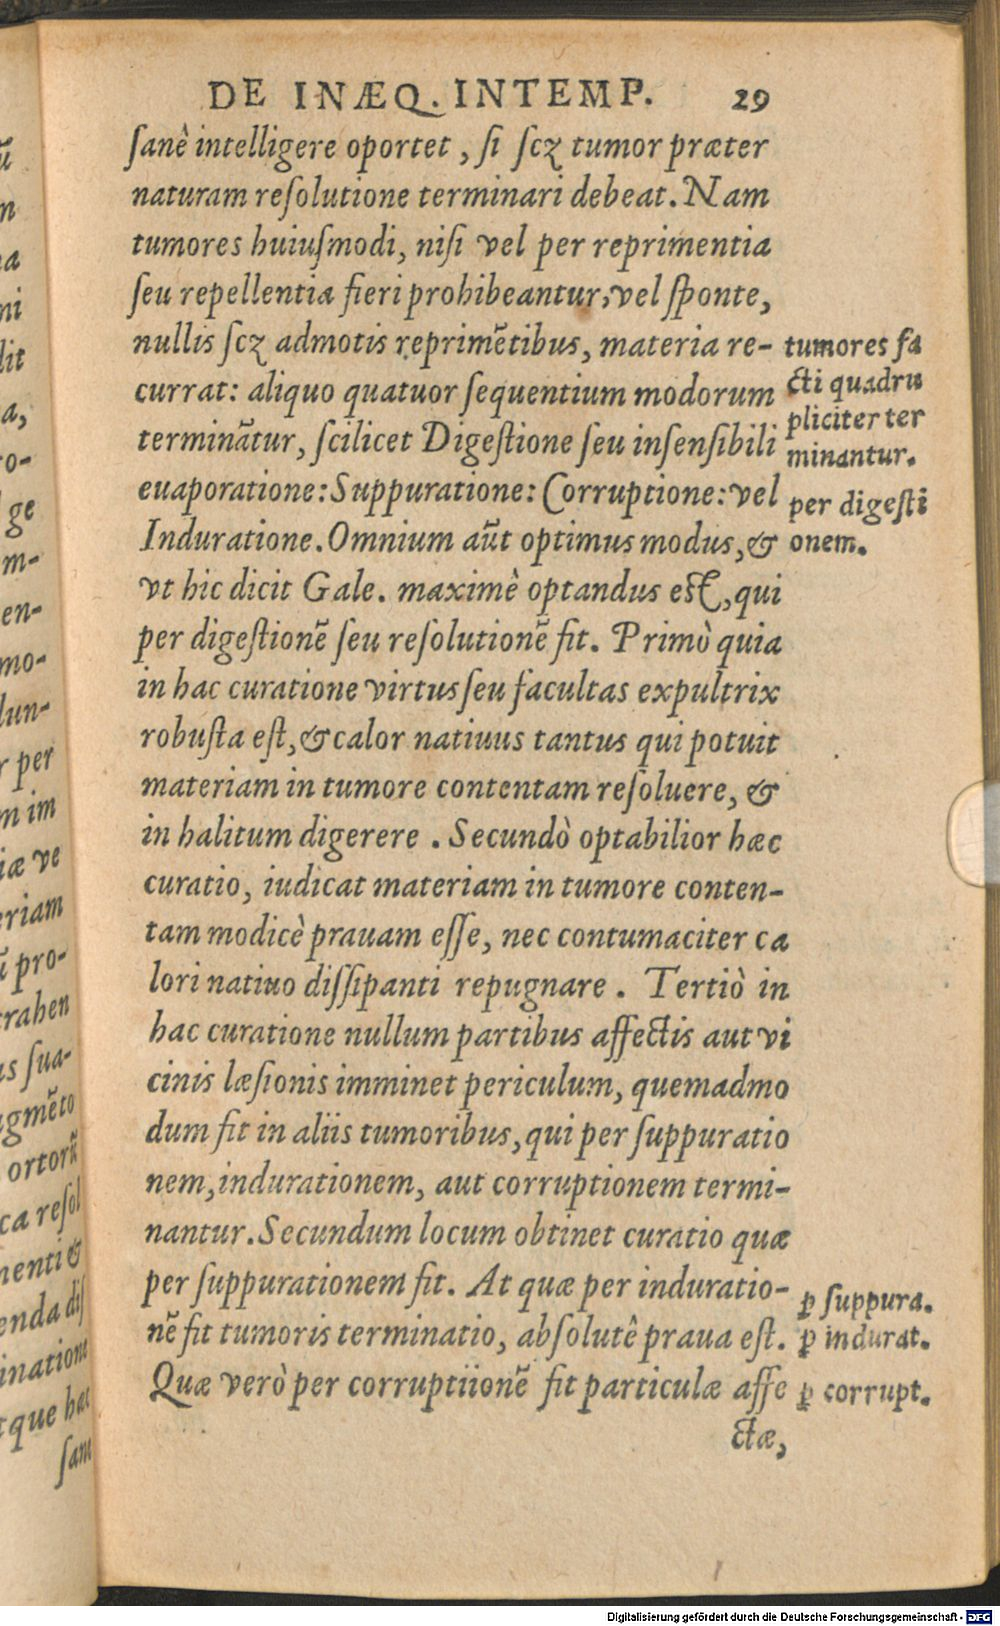 DE INÆQ. INTEMP. 29
ſanè intelligere oportet, ſi ſcꝫ tumor præter
naturam reſolutione terminari debeat. Nam
tumores huiuſmodi, niſi vel per reprimentia
ſeu repellentia fieri prohibeantur, vel ſponte,
nullis ſcꝫ admotis reprimẽtibus, materia re-
currat: aliquo quatuor ſequentium modorum
terminãtur, ſcilicet Digeſtione ſeu inſenſibili
euaporatione: Suppuratione: Corruptione: vel
Induratione. Omnium aũt optimus modus, &
vt hic dicit Gale. maximè optandus eſt, qui
per digeſtionẽ ſeu reſolutionẽ fit. Primò quia
in hac curatione virtus ſeu facultas expultrix
robuſta eſt, & calor natiuus tantus qui potuit
materiam in tumore contentam reſoluere, &
in halitum digerere. Secundò optabilior hæc
curatio, iudicat materiam in tumore conten-
tam modicè prauam eſſe, nec contumaciter ca
lori natiuo diſſipanti repugnare. Tertiò in
hac curatione nullum partibus affectis aut vi
cinis læſionis imminet periculum, quemadmo
dum fit in aliis tumoribus, qui per ſuppuratio
nem, indurationem, aut corruptionem termi-
nantur. Secundum locum obtinet curatio quæ
per ſuppurationem fit. At quæ per induratio-
nẽ fit tumoris terminatio, abſolutè praua eſt.
Quæ verò per corruptiionẽ fit particulæ affe
ctæ,
tumores fa
cti quadru
pliciter ter
minantur.
per digeſti
onem.
ꝑ ſuppura.
ꝑ indurat.
ꝑ corrupt.
ũ
n
na
ni
lit
a,
ro-
ge
m-
en-
mo-
lun-
r per
m im
iæ ve
eriam
ũ pro-
trahen
us ſua-
ugmẽto
ortorũ
ca reſol
menti &
enda diſ
inatione
tque hæc
ſanè
Digitalisierung gefördert durch die Deutsche Forschungsgemeinschaft - DFG